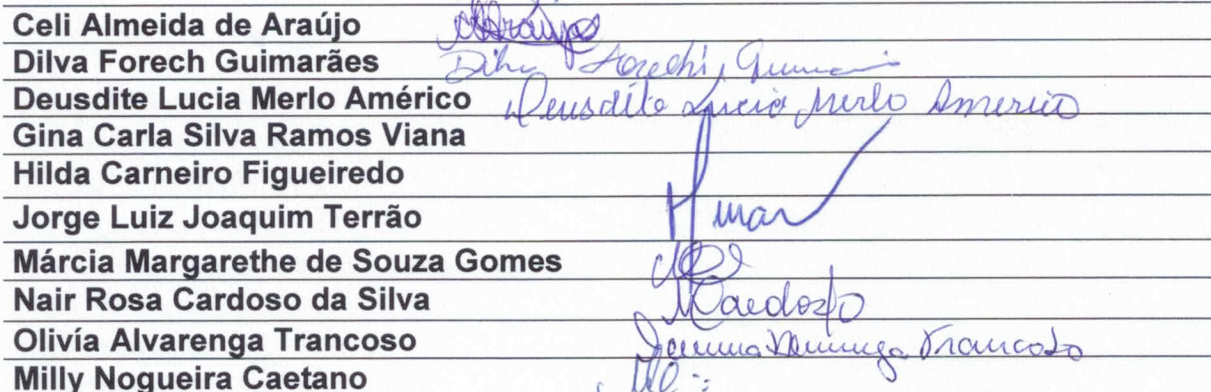 Celi Almeida de Araújo Araújo
Dilva Forech Guimarães
Deusdite Lucia Merlo Américo Deusdite Lucia Merlo America
Gina Carla Silva Ramos Viana
Hilda Carneiro Figueiredo
Jorge Luiz Joaquim Terrão
Márcia Margarethe de Souza Gomes
Nair Rosa Cardoso da Silva NCardoso
Olivía Alvarenga Trancoso Trancoso
Milly Nogueira Caetano